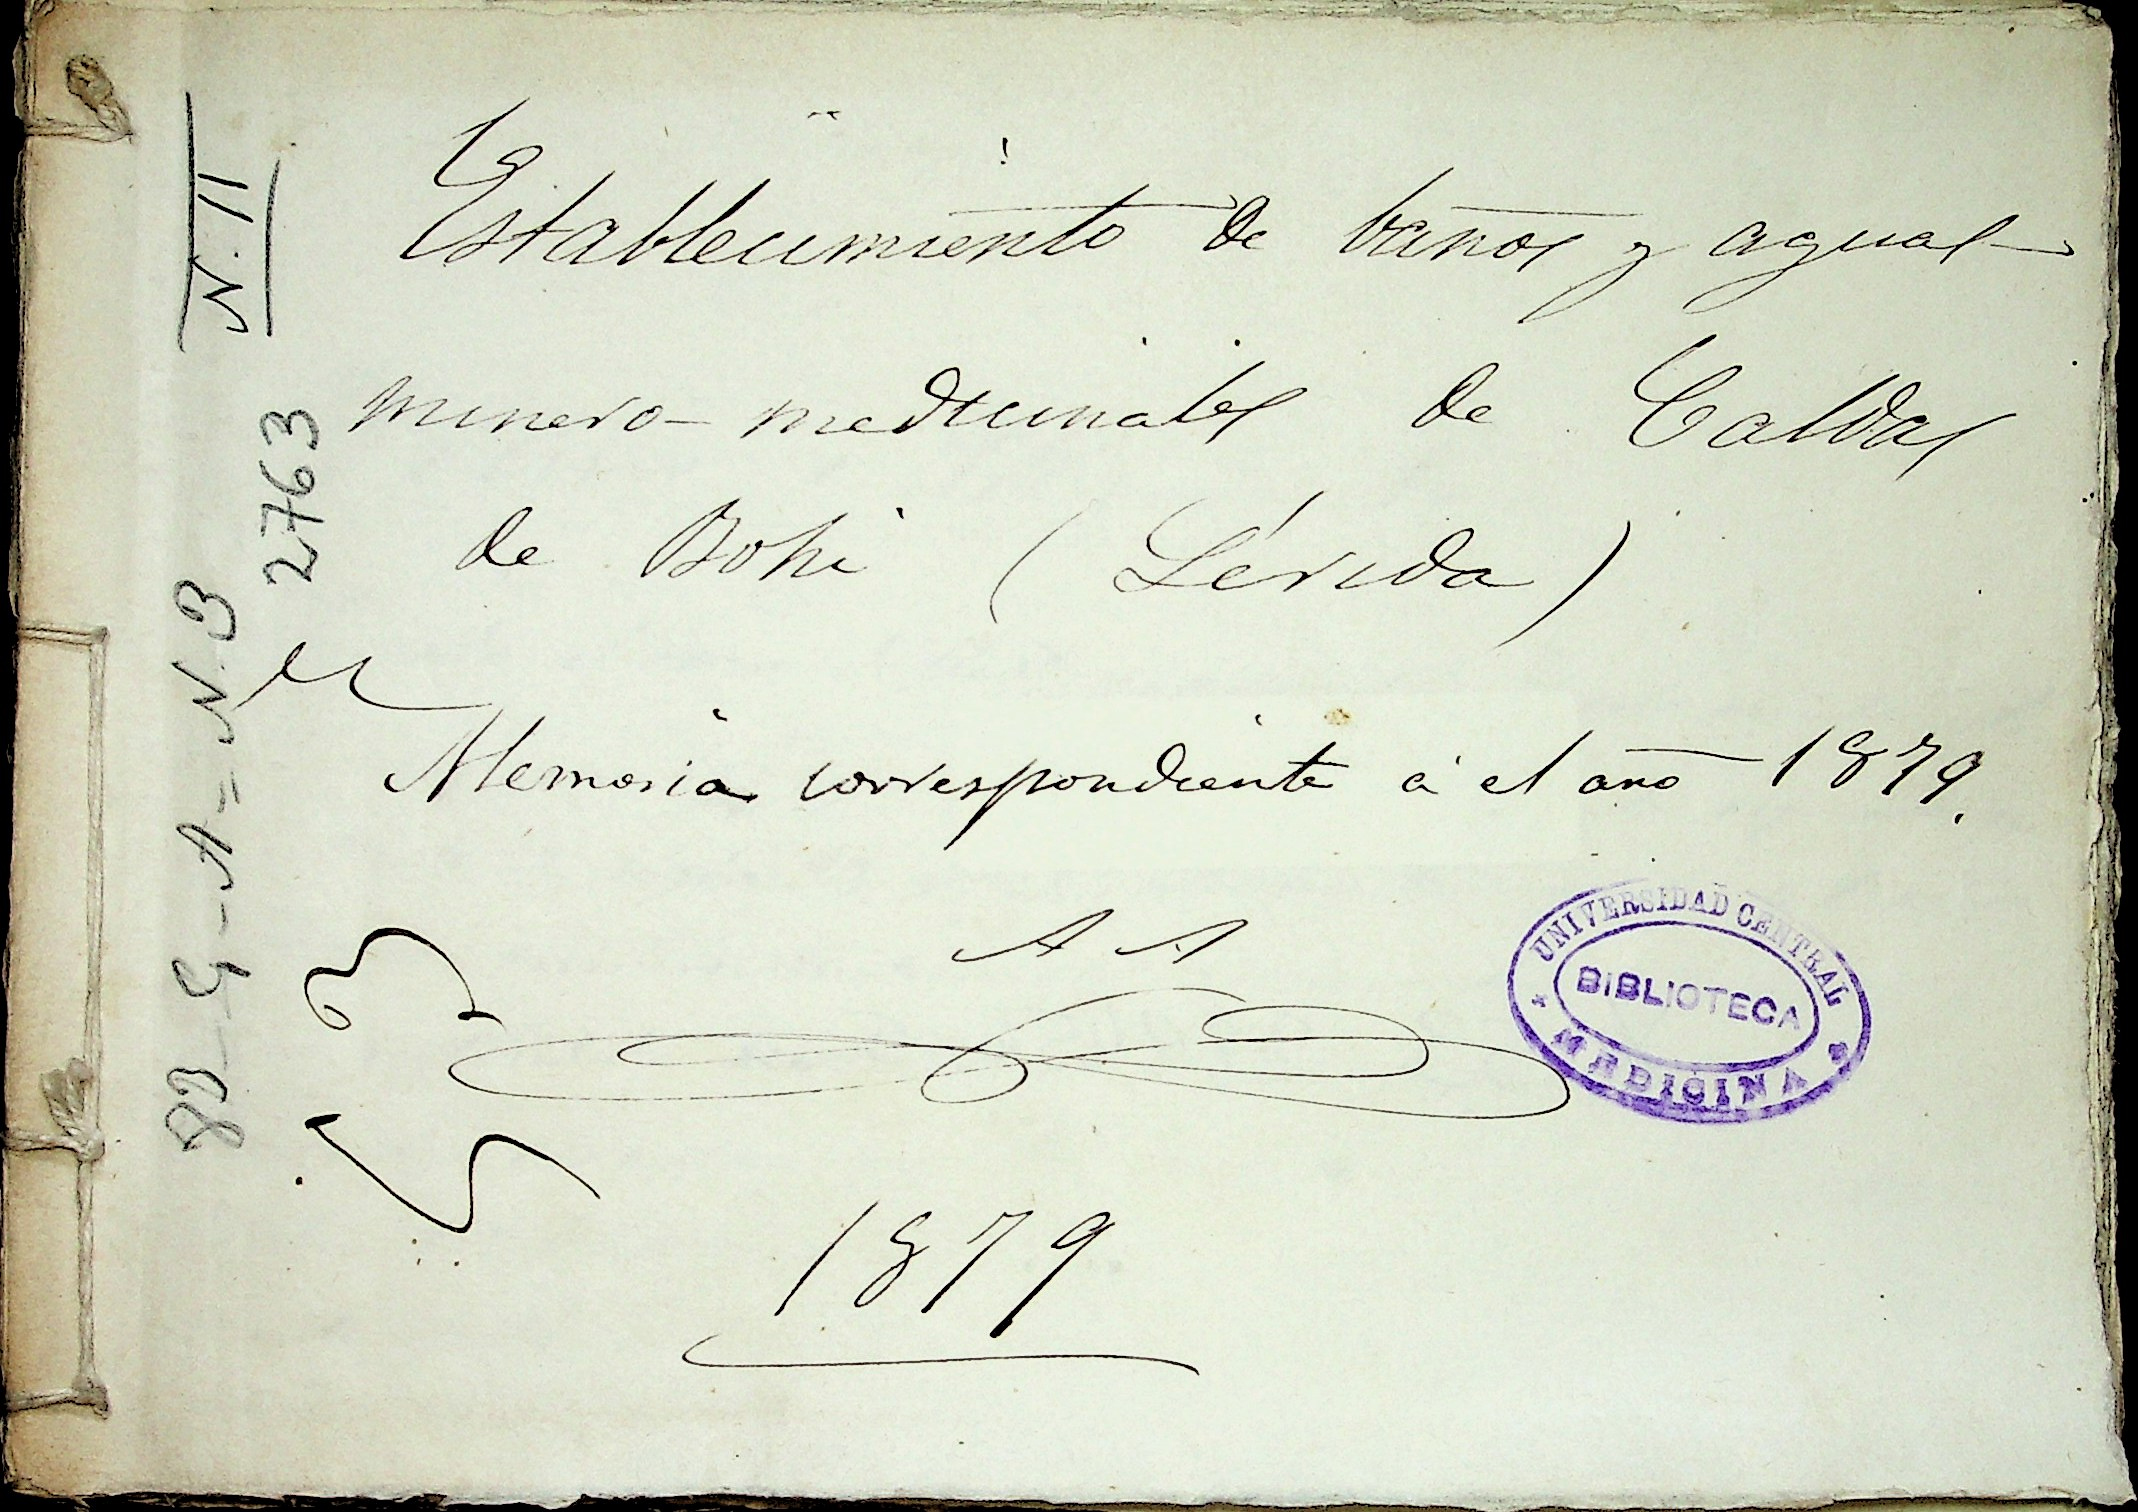 Establecimiento de baños y aguas
minero-medicinales de Caldas
de Bohi (Lérida)
Memoria correspondiente á el año 1879.
A A
1879
UNIVERSIDAD CENTRAL
BIBLIOTECA
MEDICINA
N. 11
2763